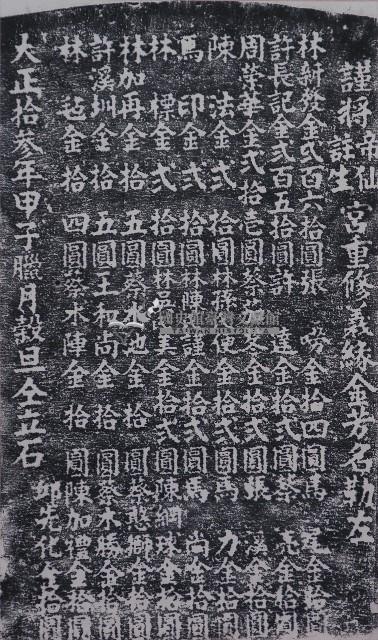 謹將帝仙註生宮重修義緣金芳名勒左
林對發金弍百六十圓張勞金拾四圓馬金拾圓
許長記金弍百五拾圓許蓬金拾弍圓蔡亮金拾圓
周榮華金弍拾壱圓蔡茄冬金拾弍圓張溪金拾圓
陳法金弍拾圓林孫便金拾弍圓馬力金拾圓
馬印金弍拾圓林陳謹金拾弍圓馬尚金拾圓
林標金弍拾圓林吳美金拾弍圓陳網球金拾圓
林加再金拾五圓蔡水池金拾圓蔡憨獅金拾圓
許溪圳金拾五圓王和尚金拾圓蔡木勝金拾圓
林毡金拾四圓蔡木陣金拾圓陳加禮金拾圓
邱先化金拾圓
大正拾參年甲子臘月穀旦仝立石